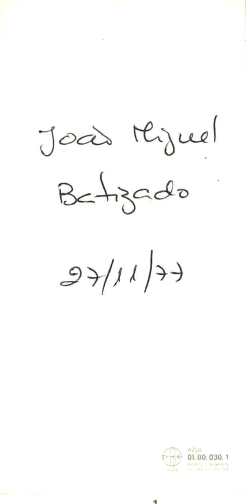 João Miguel
Batizado
27/11/77
01.00.030.1